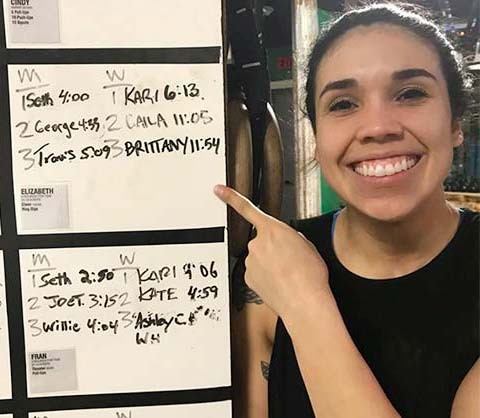 CINDY
5 Pull-Ups
10 Push-Ups
15 Squats
M W
1 Seth 4:00 1 KARI 6:13
2 George 4:35 2 CAILA 11:05
3 Travis 5:09 3 BRITTANY 11:54
ELIZABETH
Clean
Ring Dips
M W
1 Seth 2:50 1 KARI 4:06
2 JOET 3:15 2 KATE 4:59
3 Willie 4:04 3 Ashley C.
FRAN
Thruster
Pull-Ups
M W